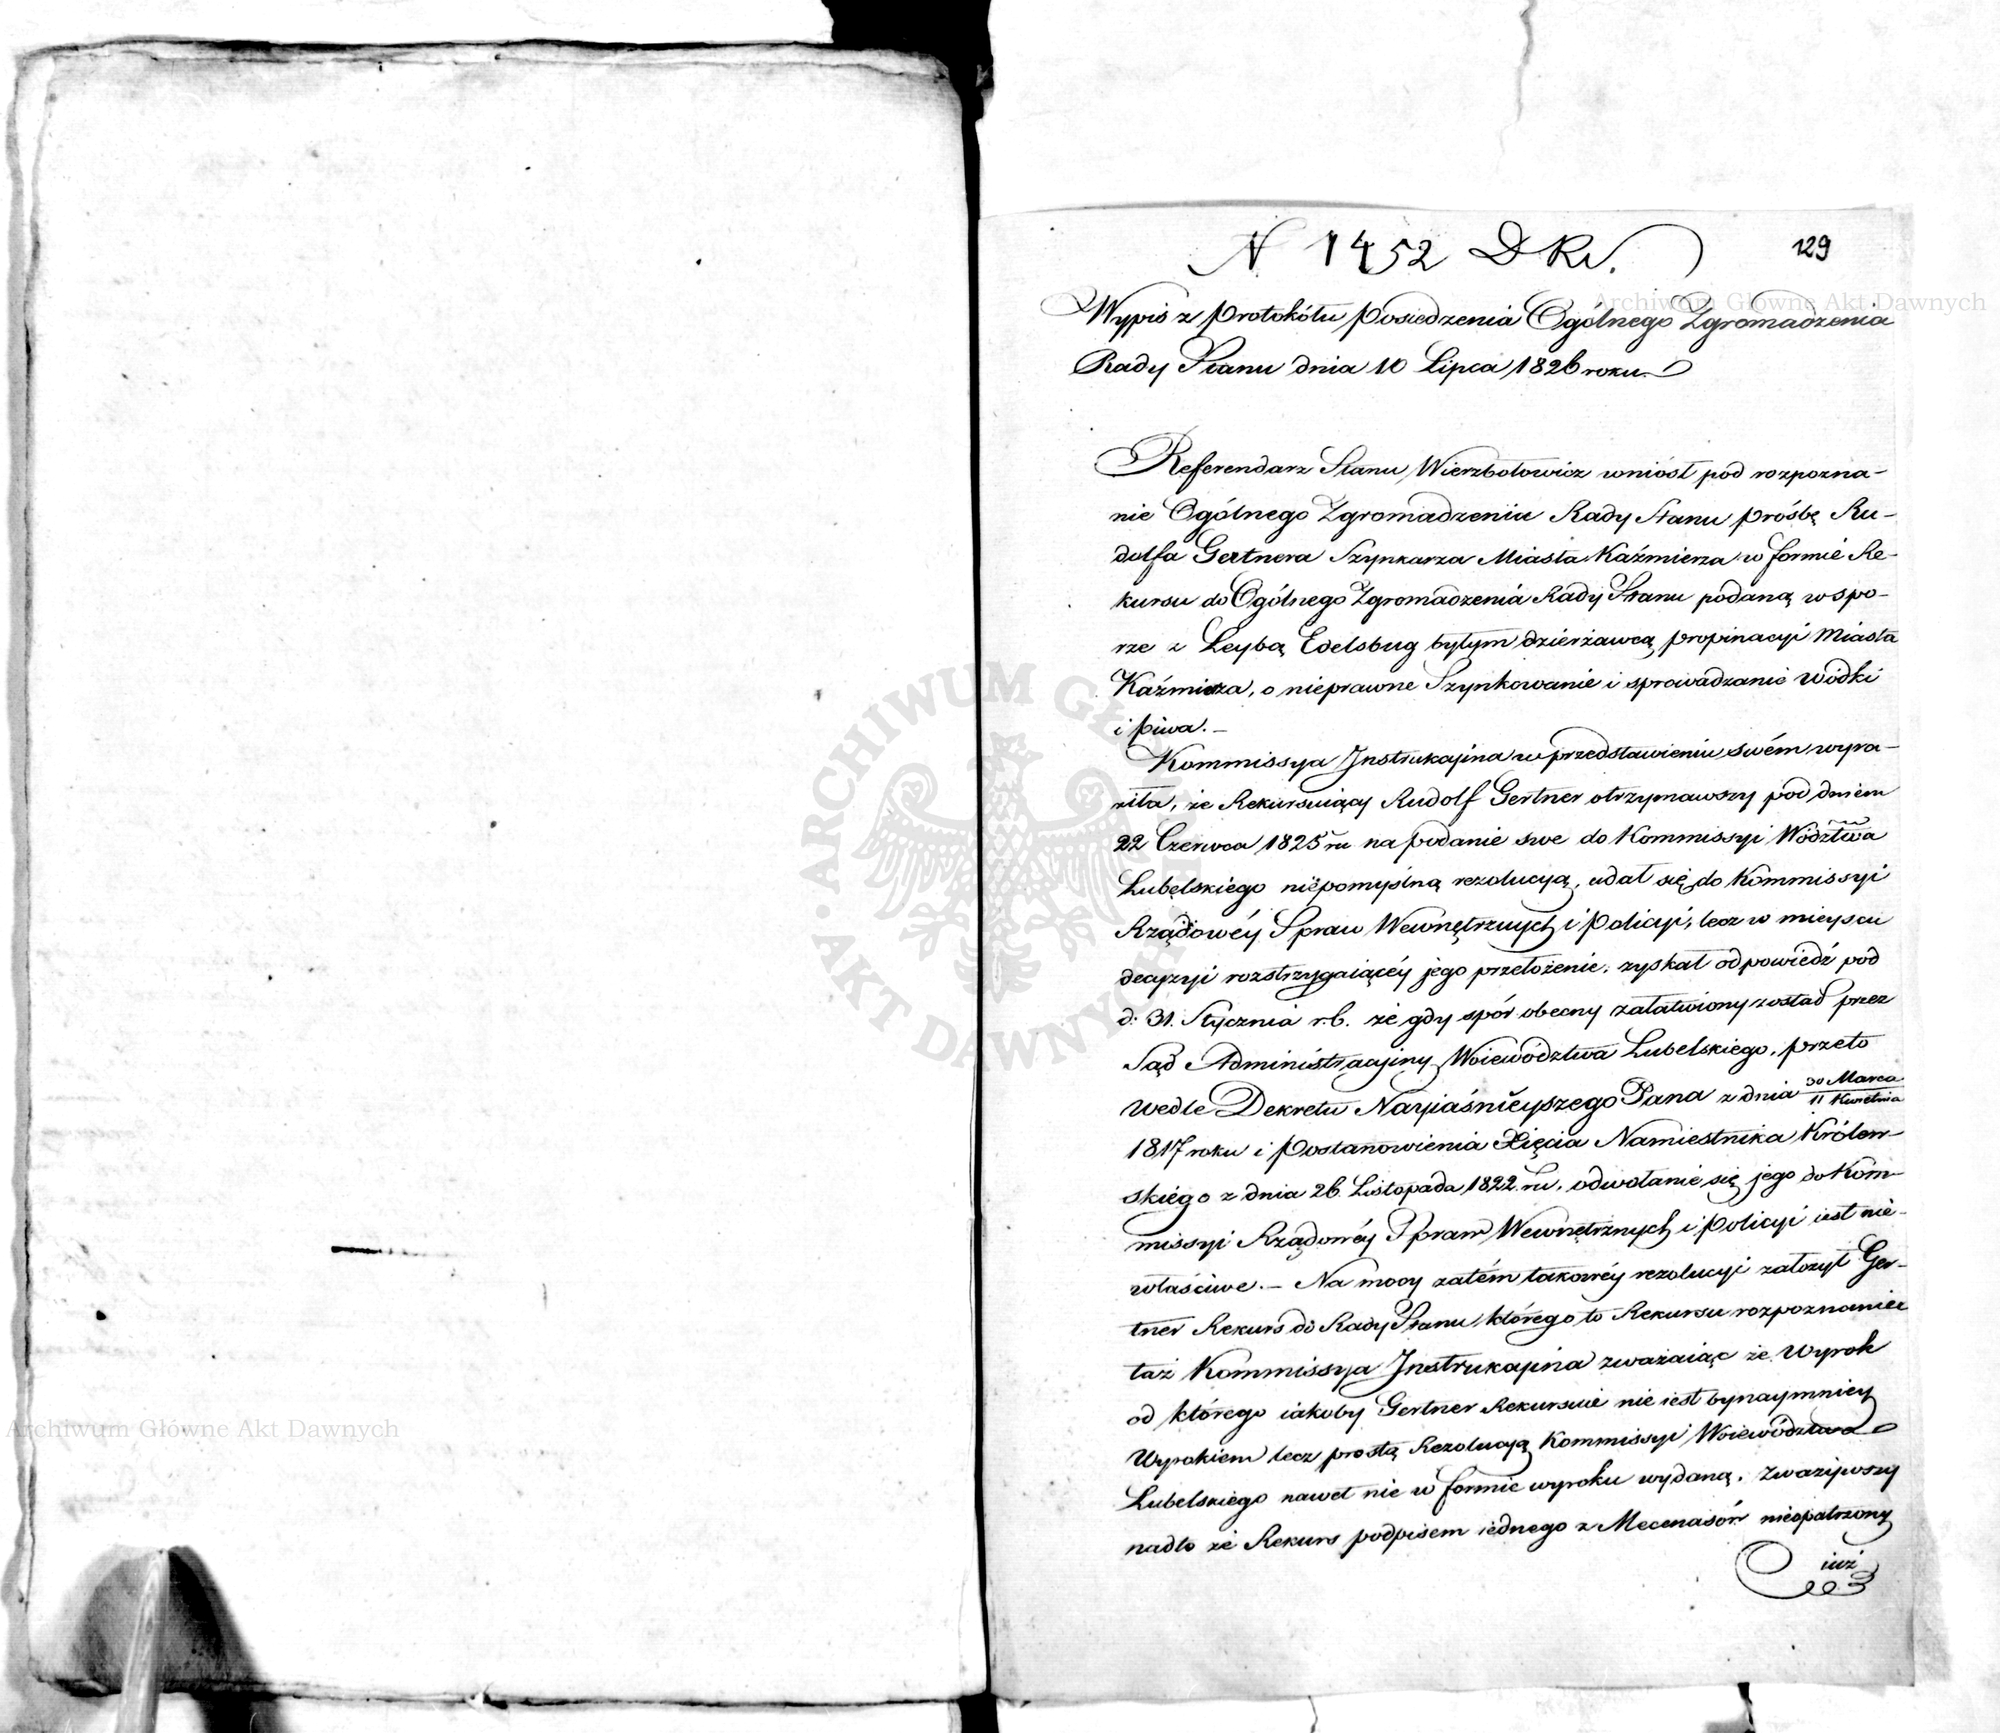 N 1452 D K w.
129
Wypis z Protokółu Posiedzenia Ogólnego Zgromadzenia
Rady Stanu dnia 10 Lipca 1826 roku.
Referendarz Stanu Wierzbołowicz wniósł pod rozpozna-
nie Ogólnego Zgromadzenia Rady Stanu prośbę Ru-
dolfa Gertnera Szynkarza Miasta Kaźmierza w formie Re-
kursu do Ogólnego Zgromadzenia Rady Stanu podaną w spo-
rze z Leybą Edelsbug byłym dzierżawcą propinacyi Miasta
Kaźmierza, o nieprawne Szynkowanie i sprowadzanie wódki
i piwa.—
Kommissya Instrukcyina w przedstawieniu swém wyra-
ziła, że Rekursuiący Rudolf Gertner otrzymawszy pod dniem
22 Czerwca 1825 ru na podanie swe do Kommissyi Wództwa
Lubelskiego niepomyślną rezolucyą, udał się do Kommissyi
Rządowéy Spraw Wewnętrznych i Policyi, lecz w mieyscu
decyzyi rozstrzygaiącéy jego przełożenie, zyskał odpowiedź pod
d: 31. Stycznia r.b. że gdy spór obecny załatwiony został przez
Sąd Administracyiny Woiewództwa Lubelskiego, przeto
wedle Dekretu Nayiaśnieyszego Pana z dnia 30 Marca / 11 Kwietnia
1817 roku i Postanowienia Xięcia Namiestnika Królew-
skiego z dnia 26. Listopada 1822. ru, odwołanie się jego do Kom-
missyi Rządowéy Spraw Wewnętrznych i Policyi iest nie-
właściwe.— Na mocy zatém takowéy rezolucyi założył Ger-
tner Rekurs do Rady Stanu którego to Rekursu rozpoznanie
taż Kommissya Instrukcyina zważaiąc że Wyrok
od którego iakoby Gertner Rekursuie nie iest bynaymniey
Wyrokiem lecz prostą Rezolucyą Kommissyi Woiewództwa
Lubelskiego nawet nie w formie wyroku wydaną. Zważywszy
nadto że Rekurs podpisem iednego z Mecenasów nieopatrzony
iuż
Archiwum Główne Akt Dawnych
Archiwum Główne Akt Dawnych